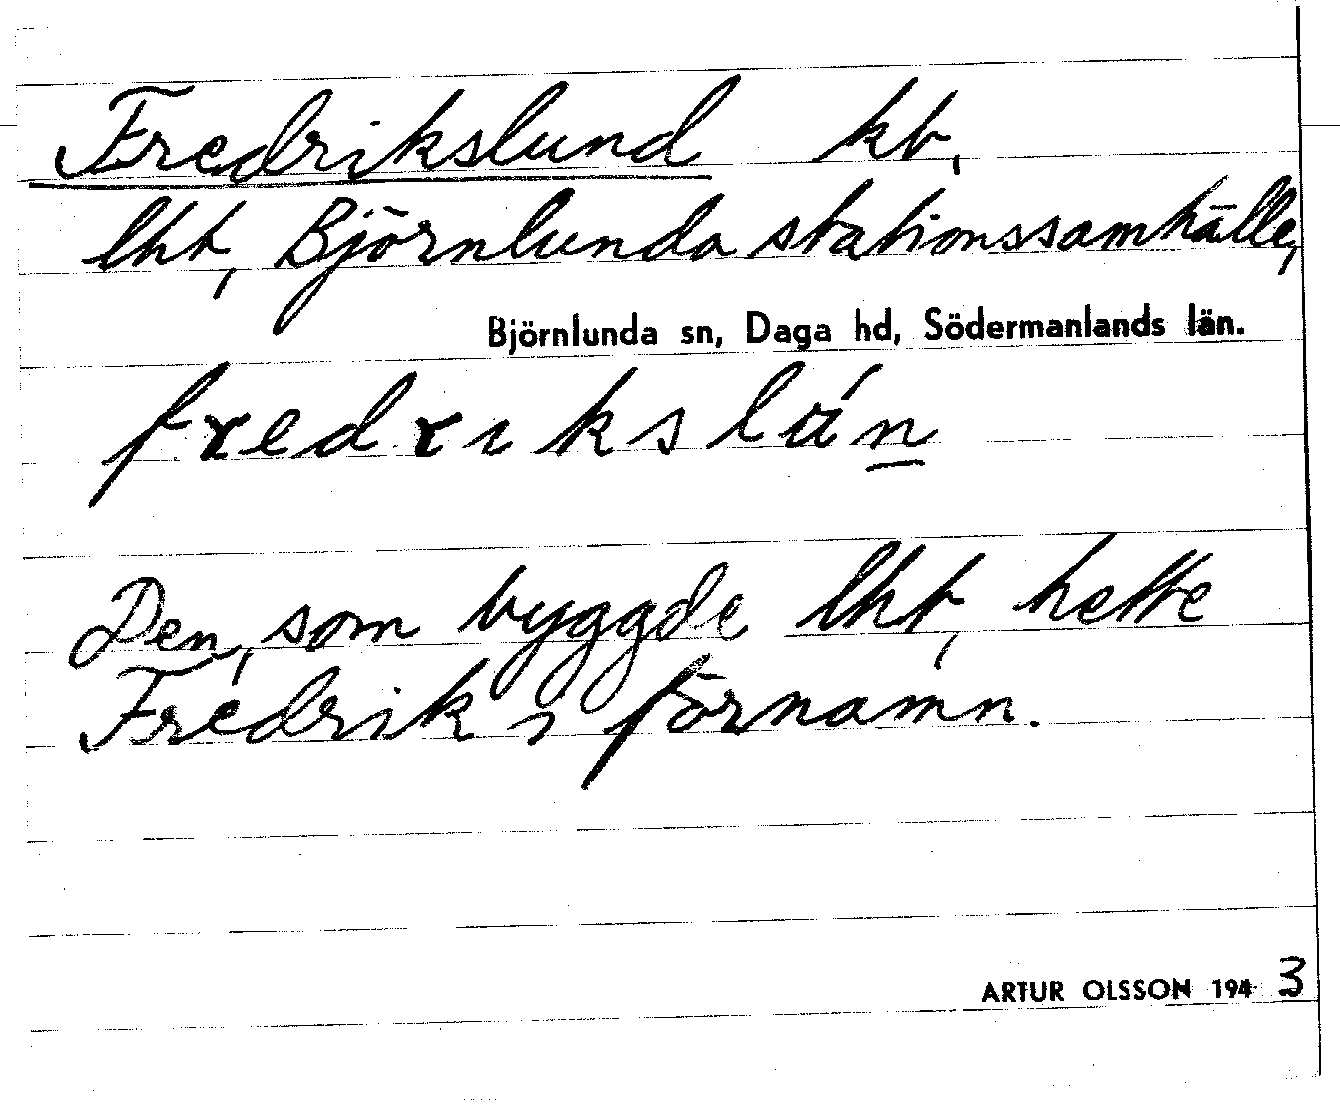 Fredrikslund kt,
lht, Björnlunda stationssamhälle,
Björnlunda sn, Daga hd, Södermanlands län.
fredrikslún̲
Den, som byggde lht, hette
Fredrik i förnamn.
ARTUR OLSSON 1943